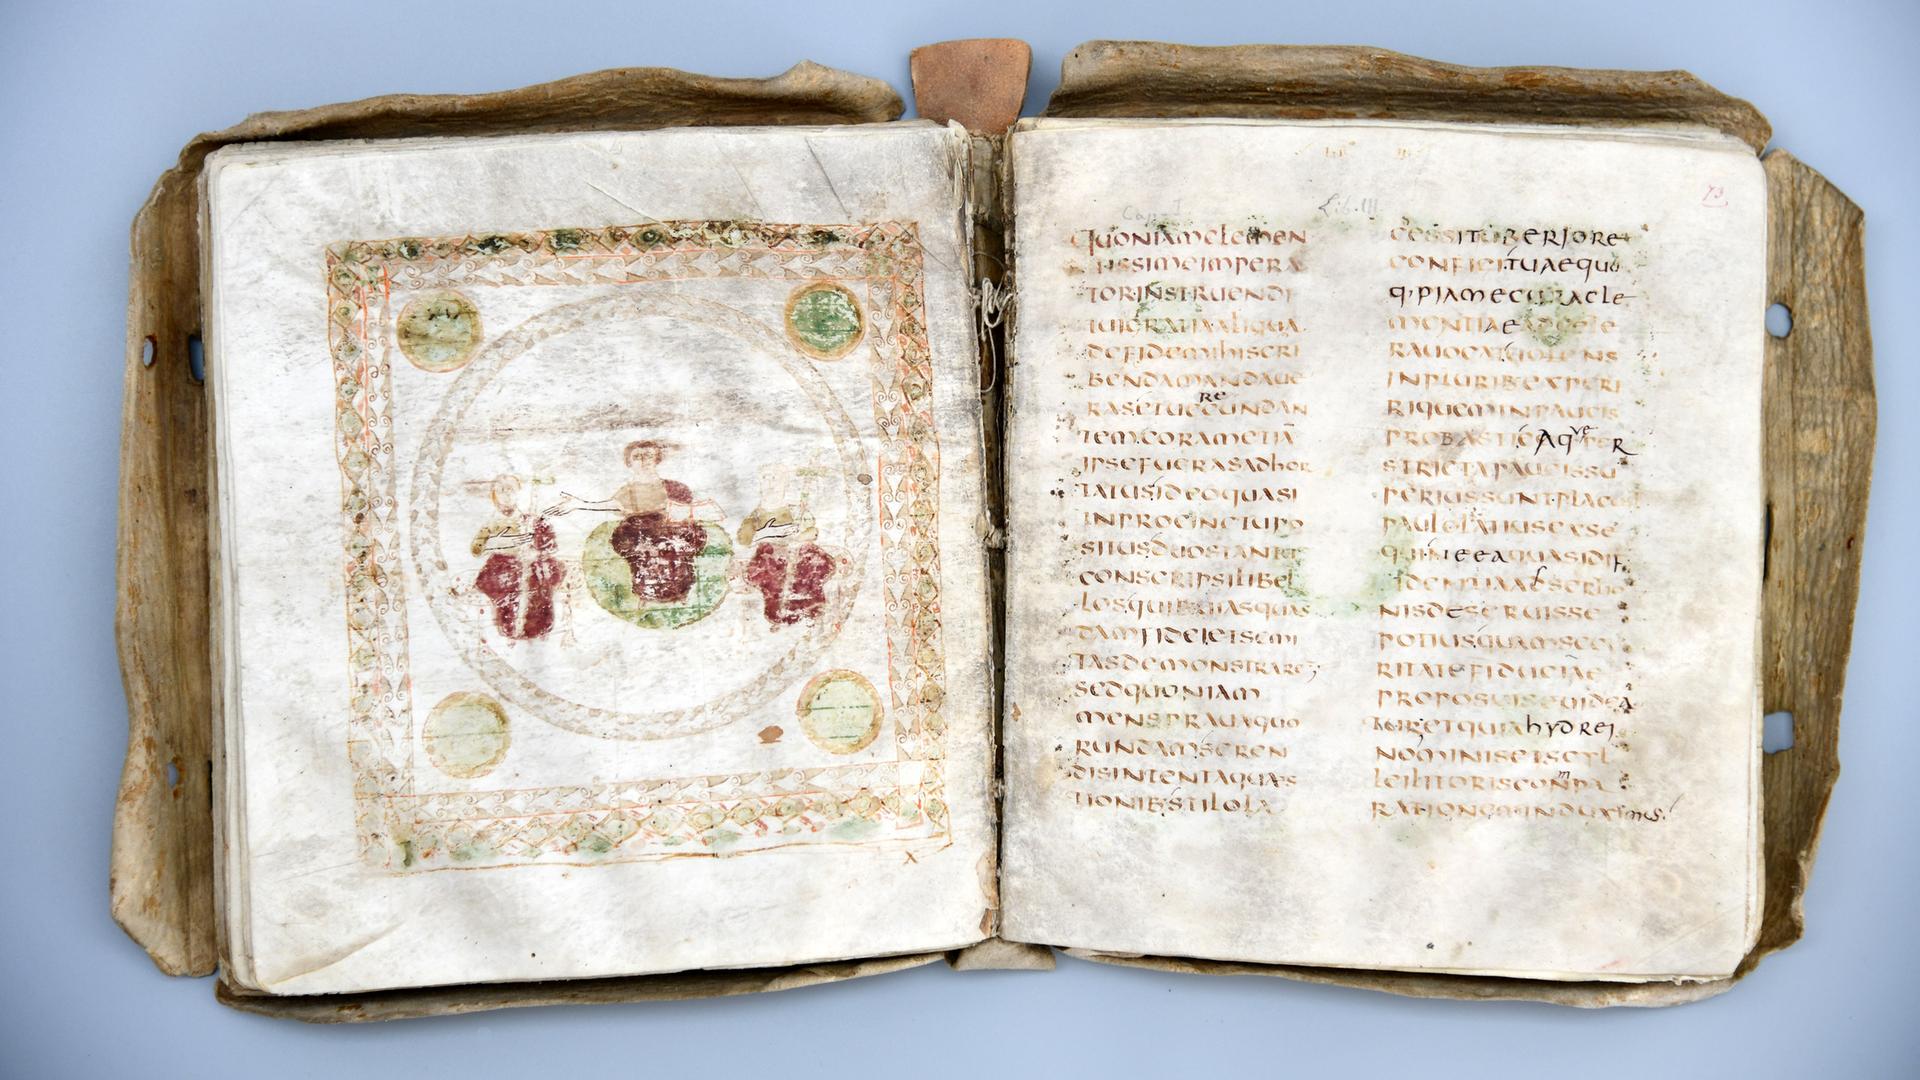 73
Cap. I
Lib. III
QUONIAMCLEMEN
TISSIMEIMPERA
TORINSTRUENDI
TUIGRATIAALIQUA
DEFIDEMIHISCRI
BENDAMANDAUE
RE
TEMCORAMETIĀ
IPSEFUERASADHOR
TATUSIDEOQUASI
INPROCINCTUPO
SITUSDUOSTANT
CONSCRIPSILIBEL
LOSQUIBUIASQUAS
DAMFIDEIETSEMI
TASDEMONSTRARE
SEDQUONIAM
MENSPRAUAQUO
RUNDAMSEREN
DISINTENTAQUAES
TIONIBSTILOLA
CESSITUBERIORE
CONFICITUAEQUO
Q·PIAMECURACLE
MONTIAE
RAUOCATIOLENS
INPLURIBEXPERI
RIQUEMINPAUCIS
PROBASTI
STRICTAPAUCISSU
PERIUSSUNTPLACE
PAULOLATIUSEXSE
NISDESERUISSE
POTIUSQUAMSECU
RITATEFIDUCIAE
PROPOSUISSEUIDEA
TURETQUIAHYDREI
NOMINISETSCYL
LEILITORISCONPA
RATIONEMINDUXIMUS